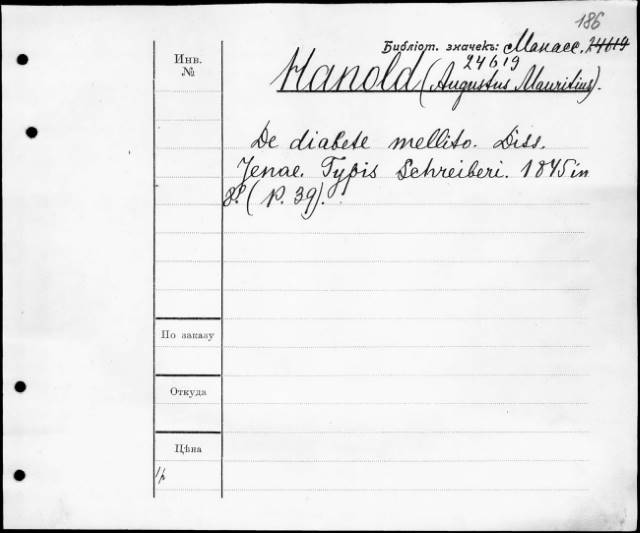 186
Библіот. значекъ: Манасс. 24619
24619
Инв.
№
Hanold (Augustus Mauritius).
De diabete mellito. Diss.
Jenae. Typis Schreiberi. 1845 in
8º. (p. 39).
По заказу
Откуда
Цѣна
1/р